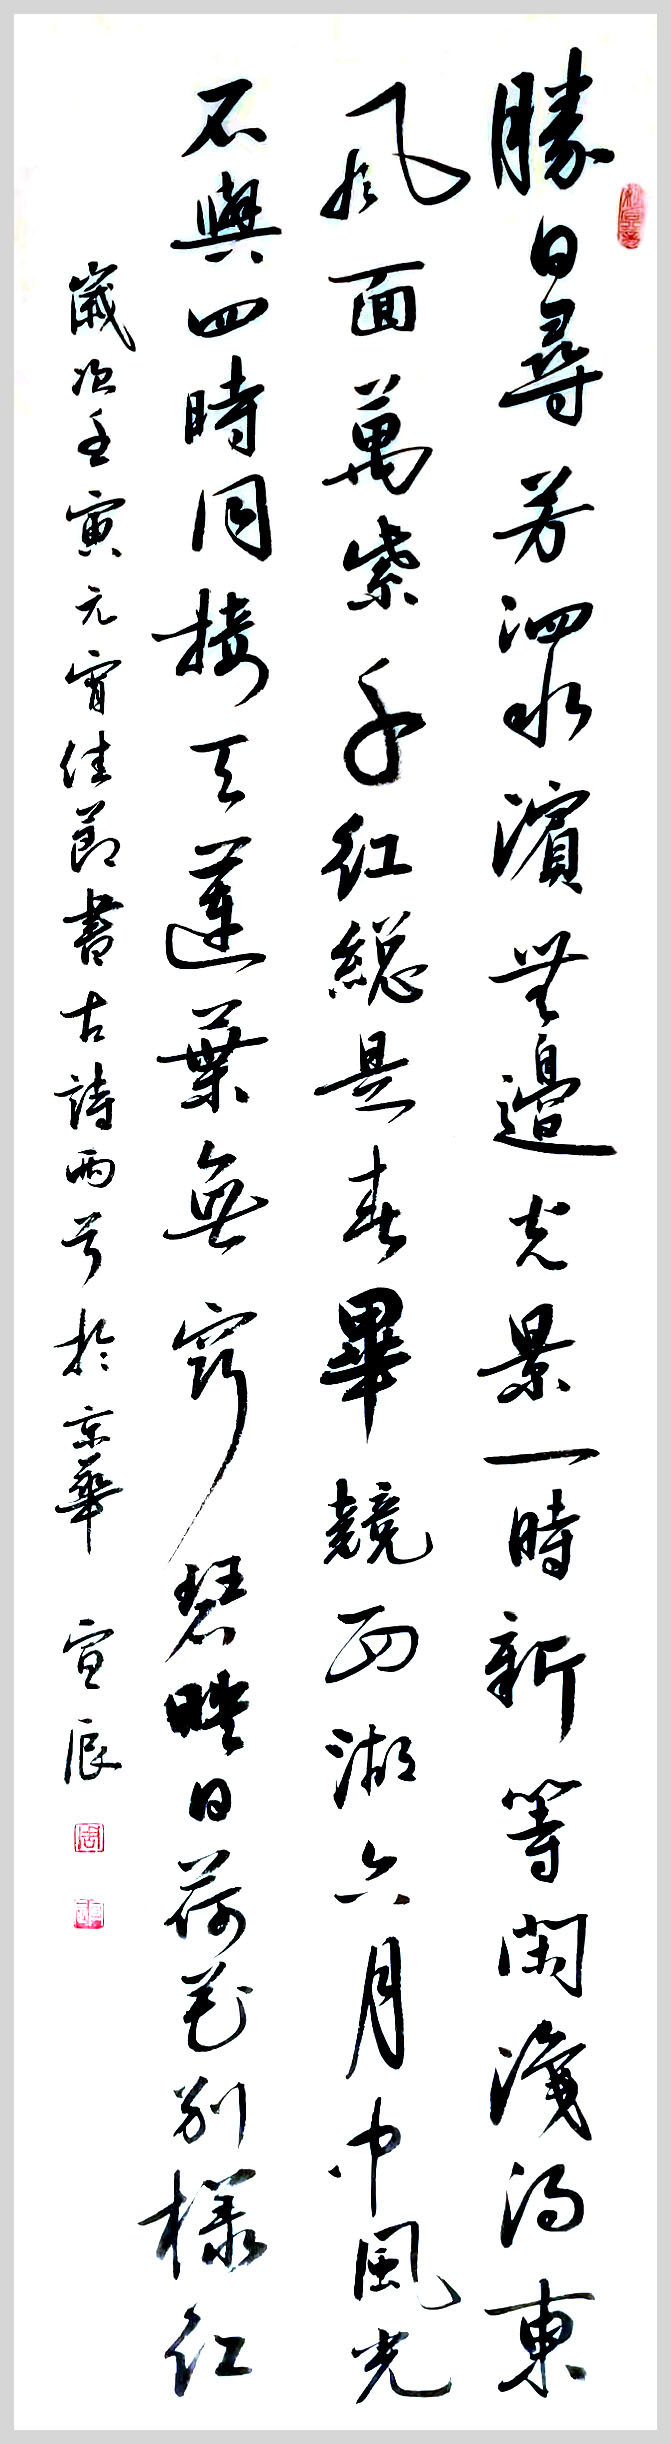 勝日尋芳泗水濱無邊光景一時新等閑識得東
風面萬紫千紅總是春畢競西湖六月中風光
不與四時同接天蓮葉無窮碧映日荷花別樣紅
歲次壬寅元宵佳節書古詩兩首於京華 宣辰